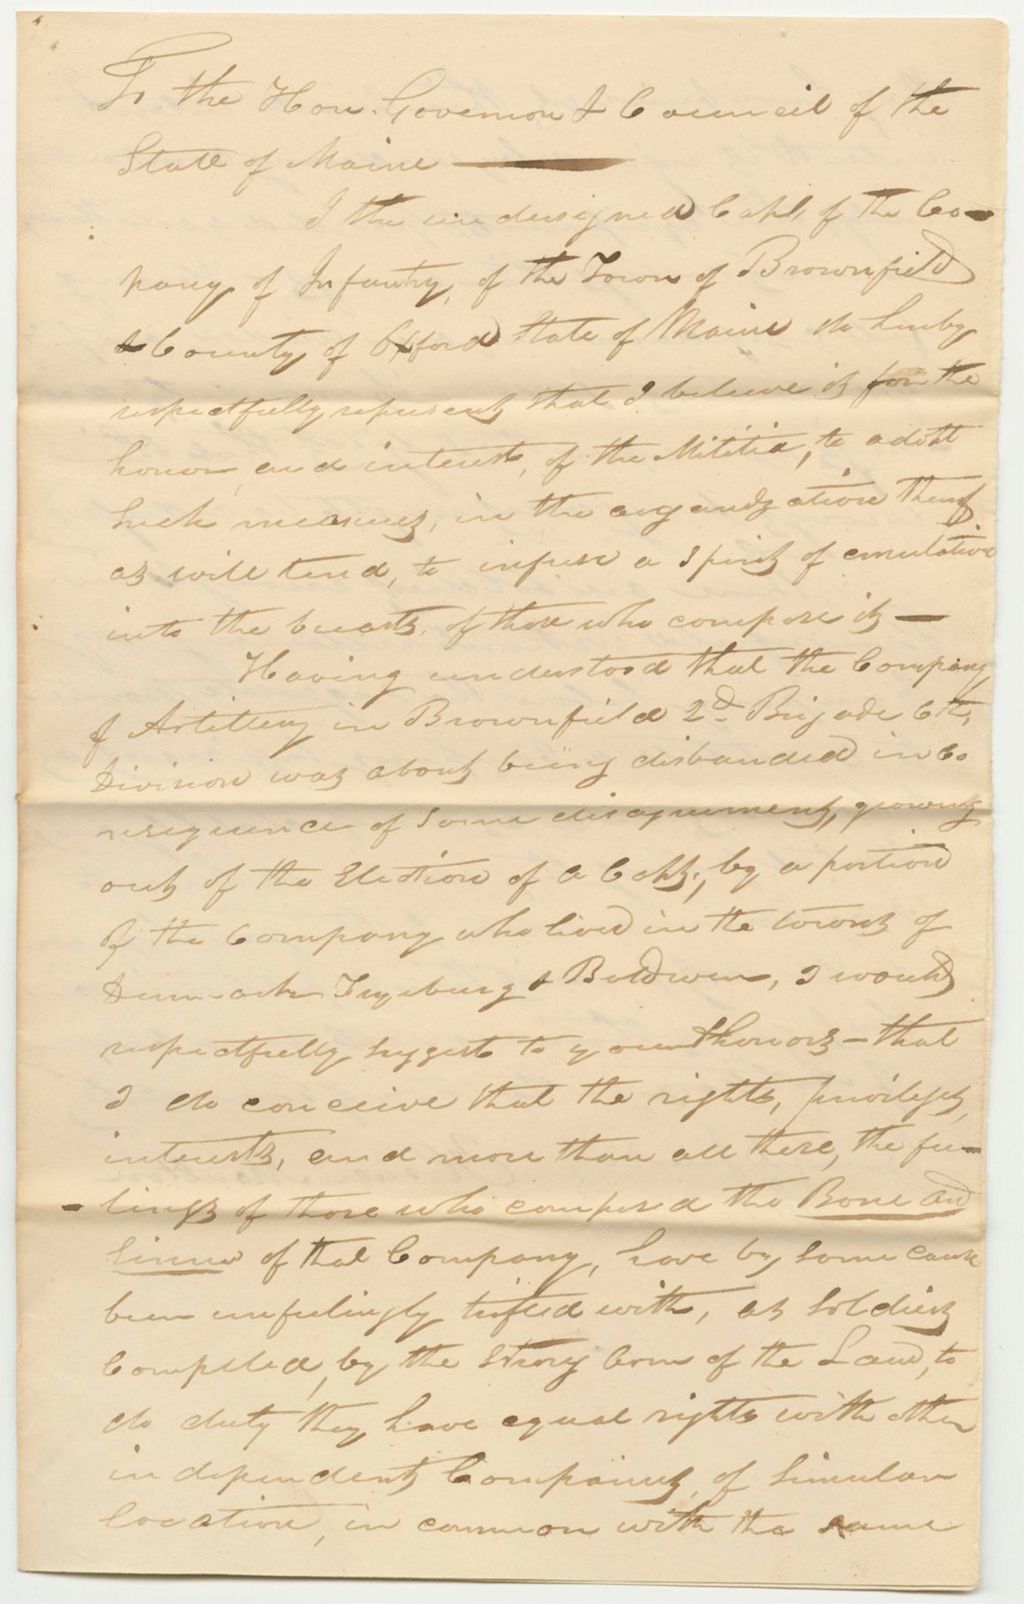 To the Hon. Governor & Council of the
State of Maine
I the undersigned Capt. of the Co-
pany of Infantry, of the Town of Brownfield
& County of Oxford State of Maine do hereby
respectfully represent, that I believe it for the
honor and interest, of the Militia, to adopt
such measures, in the organization thereof
as will tend, to infuse a spirit of emulation
into the breasts, of those who compose it —
Having understood that the Company
of Artillery in Brownfield 2d Brigade 6th,
Division was about being disbanded in Co
nsequence of some disagreement, growing
out of the Election of a Capt., by a portion
of the Company who lived in the towns of
Denmark Fryeburg & Baldwin, I would
respectfully suggest to your honors — that
I do conceive that the rights, privileges,
interests, and more than all these, the fee-
-lings of those who composed the Bone and
sinew of that Company, have by some cause
been unfeelingly trifled with, as soldiers
Compelled, by the strong arm of the Law, to
do duty they have equal rights with other
independent Companies, of similar
location, in common with the same